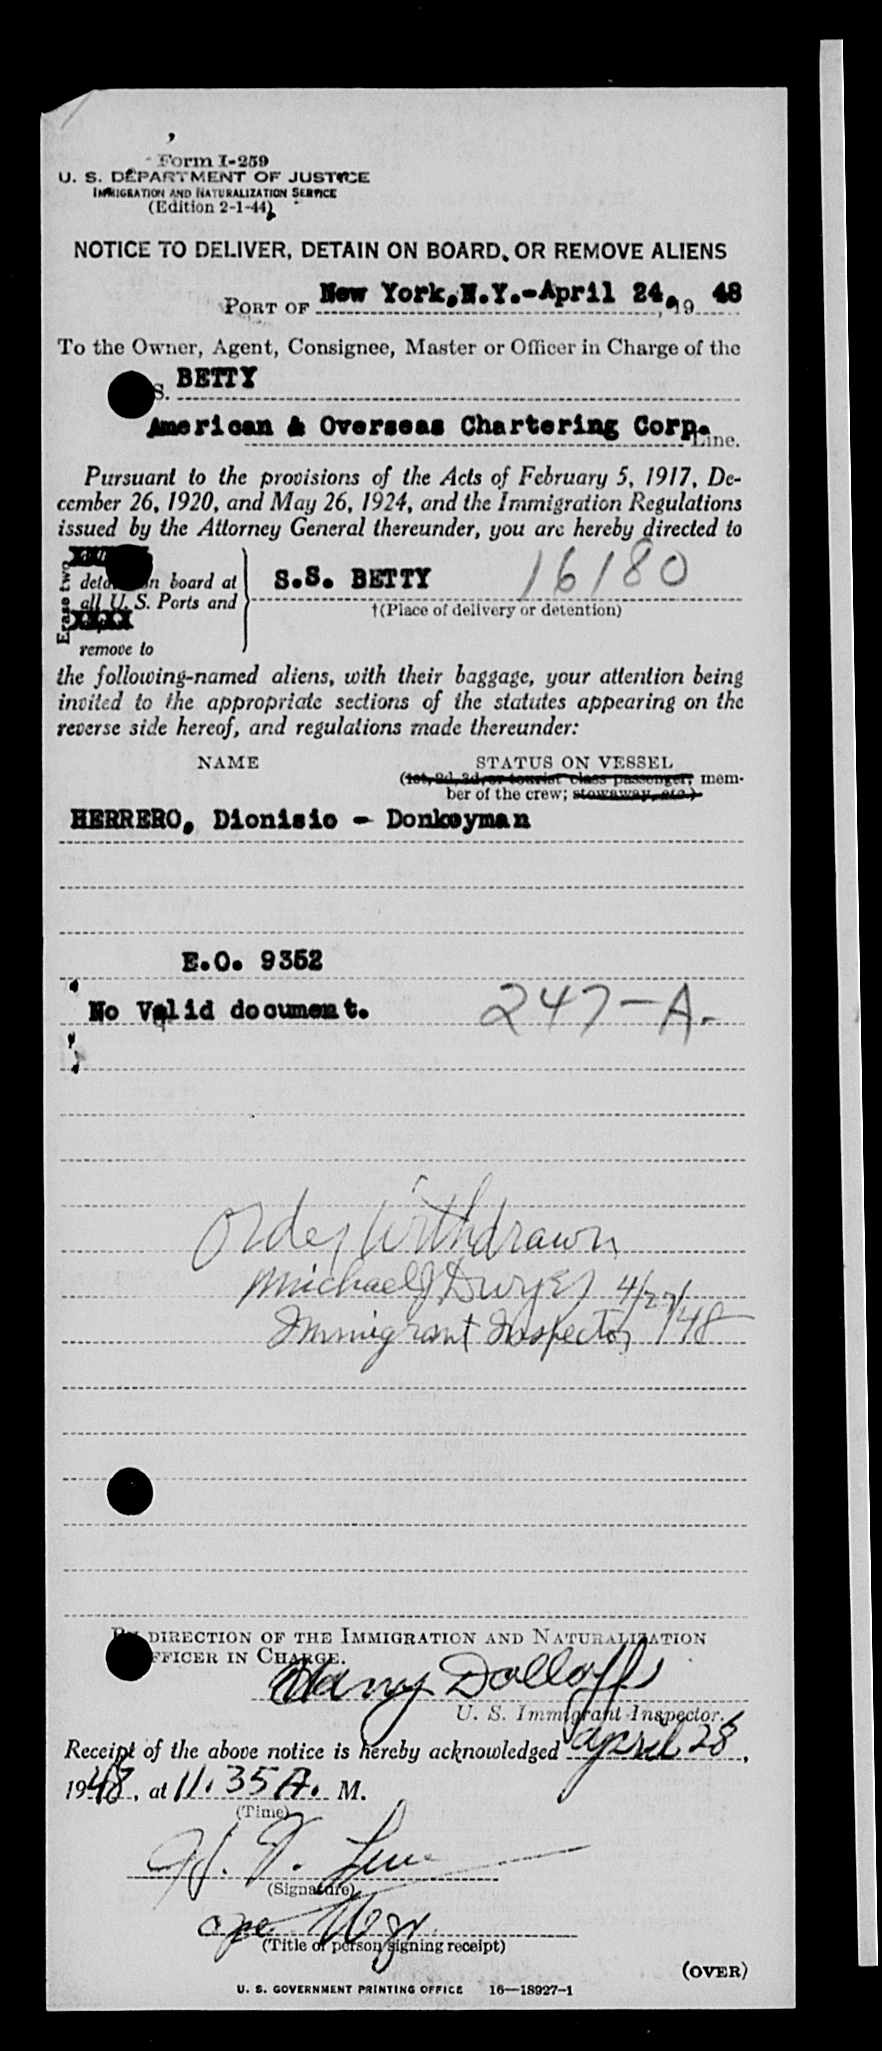 Form I-259
U. S. DEPARTMENT OF JUSTICE
IMMIGRATION AND NATURALIZATION SERVICE
(Edition 2-1-44)
NOTICE TO DELIVER, DETAIN ON BOARD, OR REMOVE ALIENS
PORT OF New York,N.Y.-April 24, 19 48
To the Owner, Agent, Consignee, Master or Officer in Charge of the
S. BETTY
American & Overseas Chartering Corp. Line.
Pursuant to the provisions of the Acts of February 5, 1917, De-
cember 26, 1920, and May 26, 1924, and the Immigration Regulations
issued by the Attorney General thereunder, you are hereby directed to
Erase two
on board at S.S. BETTY 16180
all U. S. Ports and †(Place of delivery or detention)
remove to
the following-named aliens, with their baggage, your attention being
invited to the appropriate sections of the statutes appearing on the
reverse side hereof, and regulations made thereunder:
NAME STATUS ON VESSEL
(1st, 2d, 3d, or tourist class passenger; mem-
ber of the crew; stowaway, etc.)
HERRERO, Dionisio - Donkeyman
E.O. 9352
No Valid document. 247-A.
Order Withdrawn
Michael J Dwyer 4/27/48
Immigrant Inspector
BY DIRECTION OF THE IMMIGRATION AND NATURALIZATION
OFFICER IN CHARGE.
Harry Dolloff
U. S. Immigrant Inspector.
Receipt of the above notice is hereby acknowledged April 28,
1948, at 11.35 A. M.
(Time)
H. V.
(Signature)
Ope Mgr.
(Title of person signing receipt)
(OVER)
U. S. GOVERNMENT PRINTING OFFICE 16—18927-1